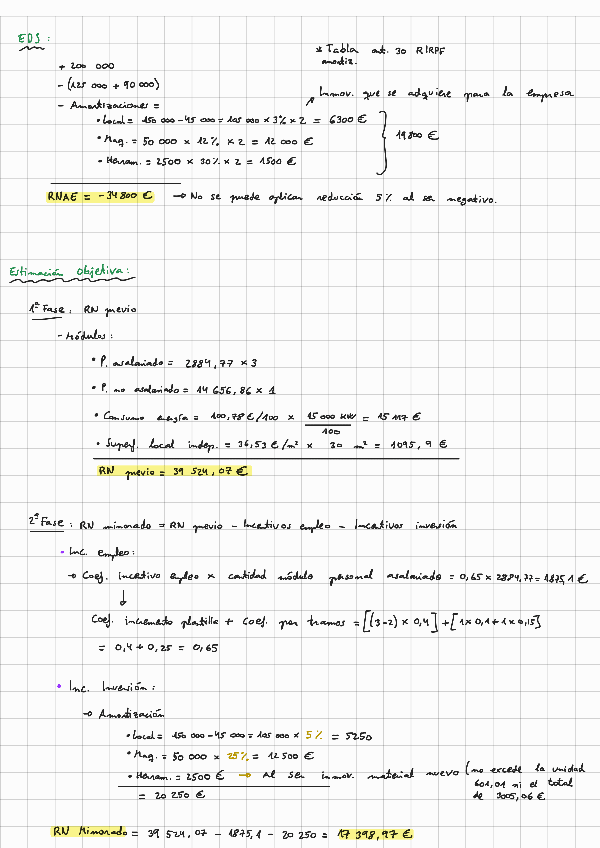 EDS:
* Tabla art. 30 RIRPF
amortiz.
+ 200 000
- (125 000 + 90 000)
- Amortizaciones =
Inmov. que se adquiere para la empresa
• Local = 150 000 - 45 000 = 105 000 × 3% × 2 = 6300 €
• Maq. = 50 000 × 12% × 2 = 12 000 €
19 800 €
• Herram. = 2500 × 30% × 2 = 1500 €
RNAE = -34 800 € → No se puede aplicar reducción 5% al ser negativo.
Estimación Objetiva:
1ª Fase: RN previo
- Módulos:
• P. asalariado = 2884,77 × 3
• P. no asalariado = 14 656,86 × 1
• Consumo energía = 100,78 €/100 × 15 000 kW/100 = 15 117 €
• Superf. local indep. = 36,53 €/m² × 30 m² = 1095,9 €
RN previo = 39 524,07 €
2ª Fase: RN minorado = RN previo - Incentivos empleo - Incentivos inversión
• Inc. empleo:
→ Coef. incentivo empleo × cantidad módulo personal asalariado = 0,65 × 2884,77 = 1875,1 €
↓
Coef. incremento plantilla + Coef. por tramos = [(3-2) × 0,4] + [1 × 0,1 + 1 × 0,15]
= 0,4 + 0,25 = 0,65
• Inc. Inversión:
→ Amortización
• Local = 150 000 - 45 000 = 105 000 × 5% = 5250
• Maq. = 50 000 × 25% = 12 500 €
• Herram. = 2500 € → Al ser inmov. material nuevo (no excede la unidad
601,01 ni el total
de 3005,06 €
= 20 250 €
RN Minorado = 39 524,07 - 1875,1 - 20 250 = 17 398,97 €